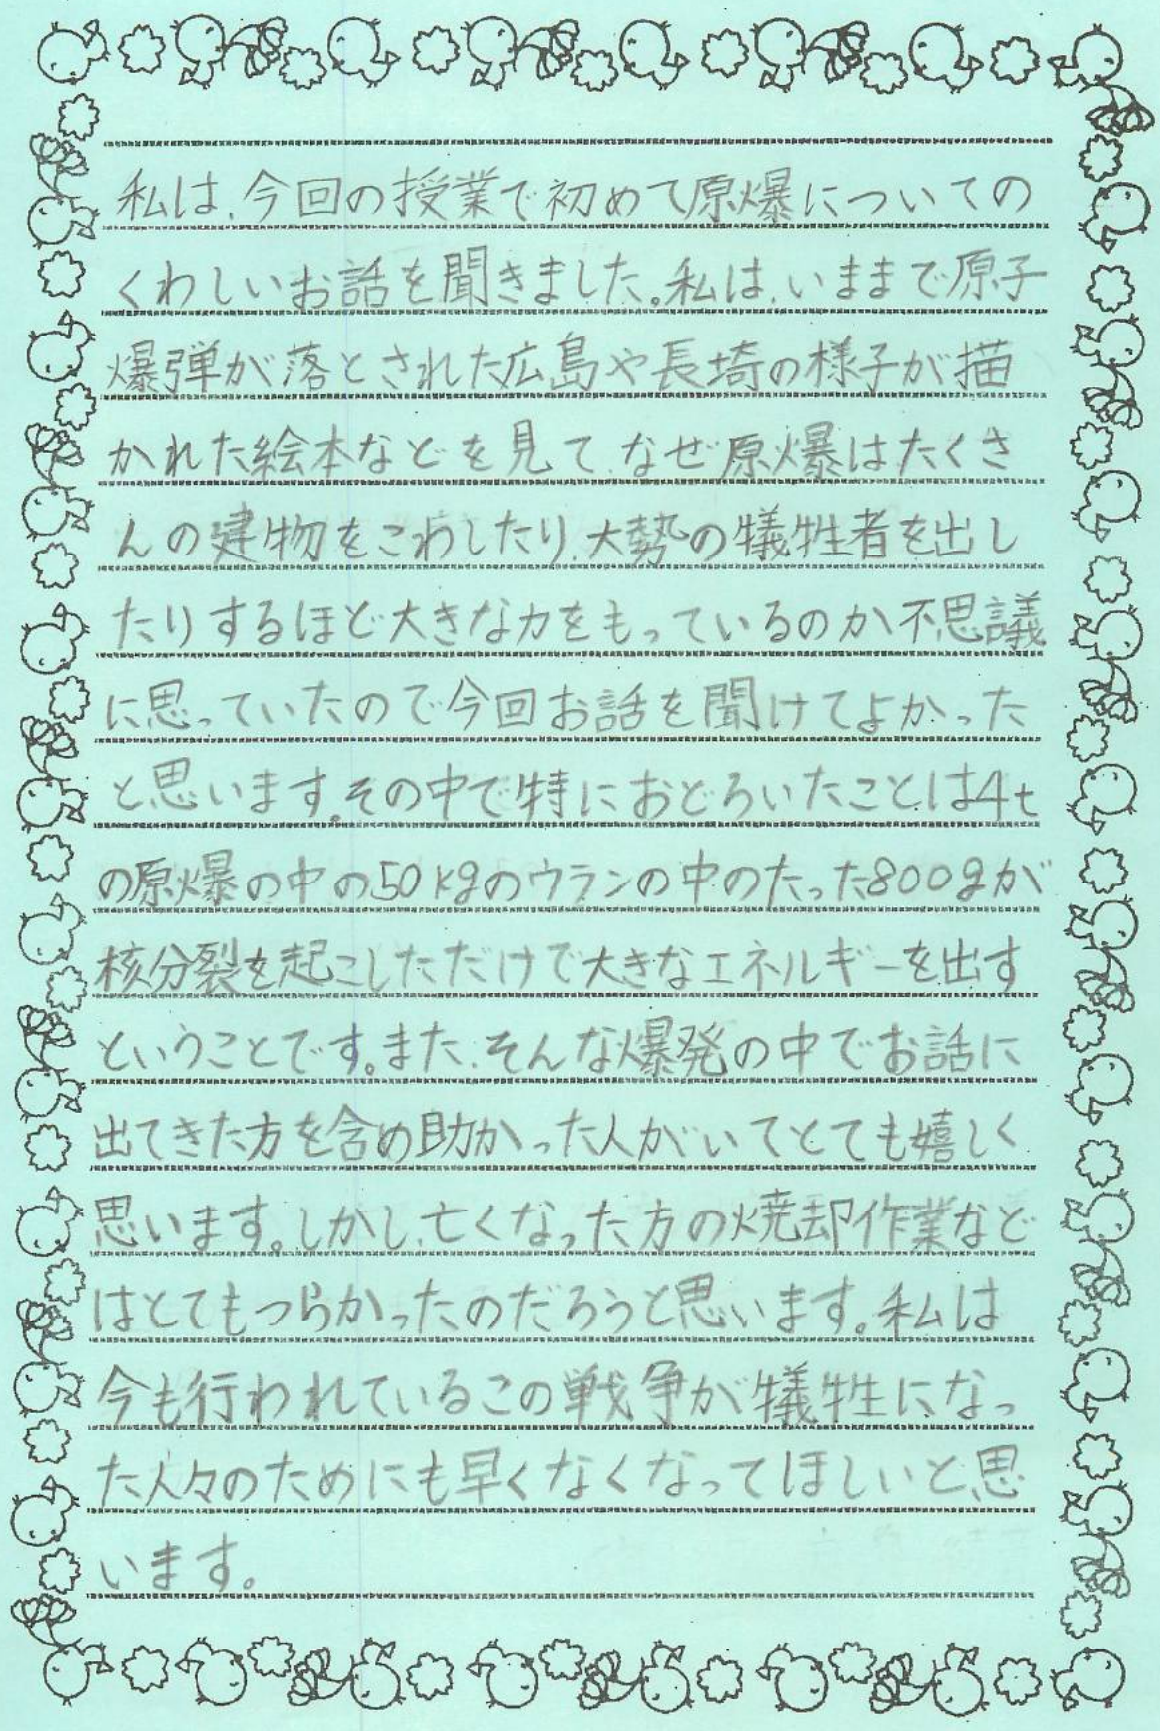 私は、今回の授業で初めて原爆についての
くわしいお話を聞きました。私は、いままで原子
爆弾が落とされた広島や長埼の様子が描
かれた絵本などを見て、なぜ原爆はたくさ
んの建物をこわしたり、大勢の犠牲者を出し
たりするほど大きな力をもっているのか不思議
に思っていたので今回お話を聞けてよかった
と思います。その中で特におどろいたことは4t
の原爆の中の50kgのウランの中のたった800gが
核分裂を起こしただけで大きなエネルギーを出す
ということです。また、そんな爆発の中でお話に
出てきた方を含め助かった人がいてとても嬉しく
思います。しかし、亡くなった方の焼却作業など
はとてもつらかったのだろうと思います。私は
今も行われているこの戦争が犠牲になっ
た人々のためにも早くなくなってほしいと思
います。